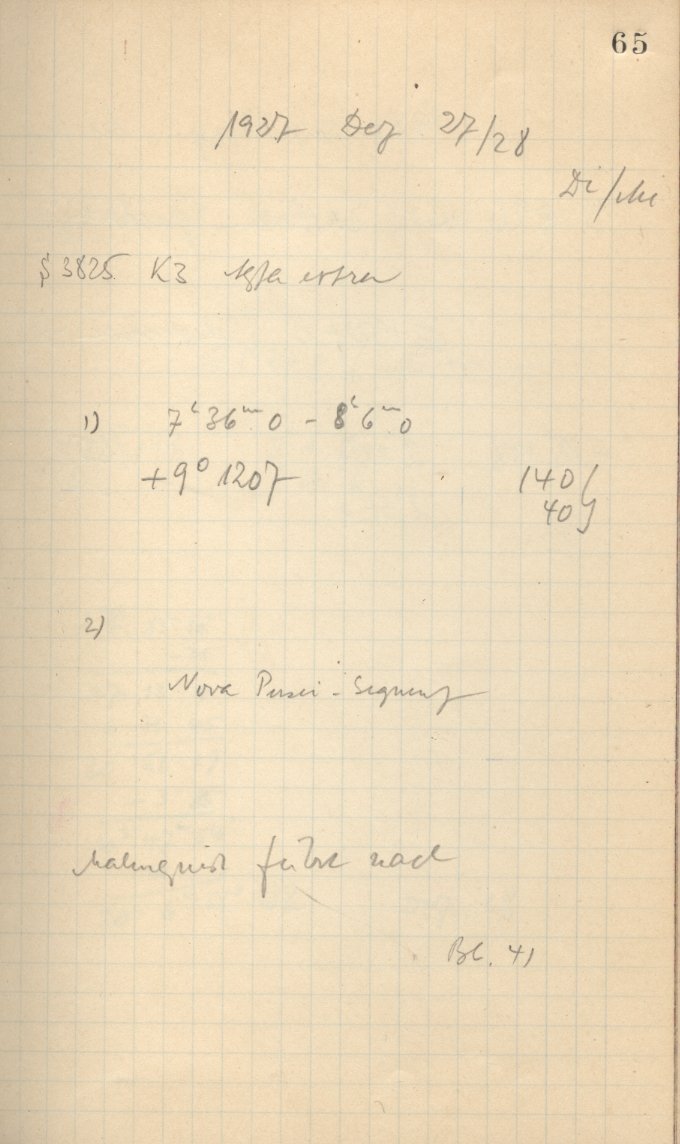 65
1927 Dez 27/28
Di/Mi
S 3825 K3 Agfa extra
1) 7h36m0 - 8h6m0
+9° 1207 140
40
2)
Nova Persei - Segment
Malmquist führt nach
Bl. 41